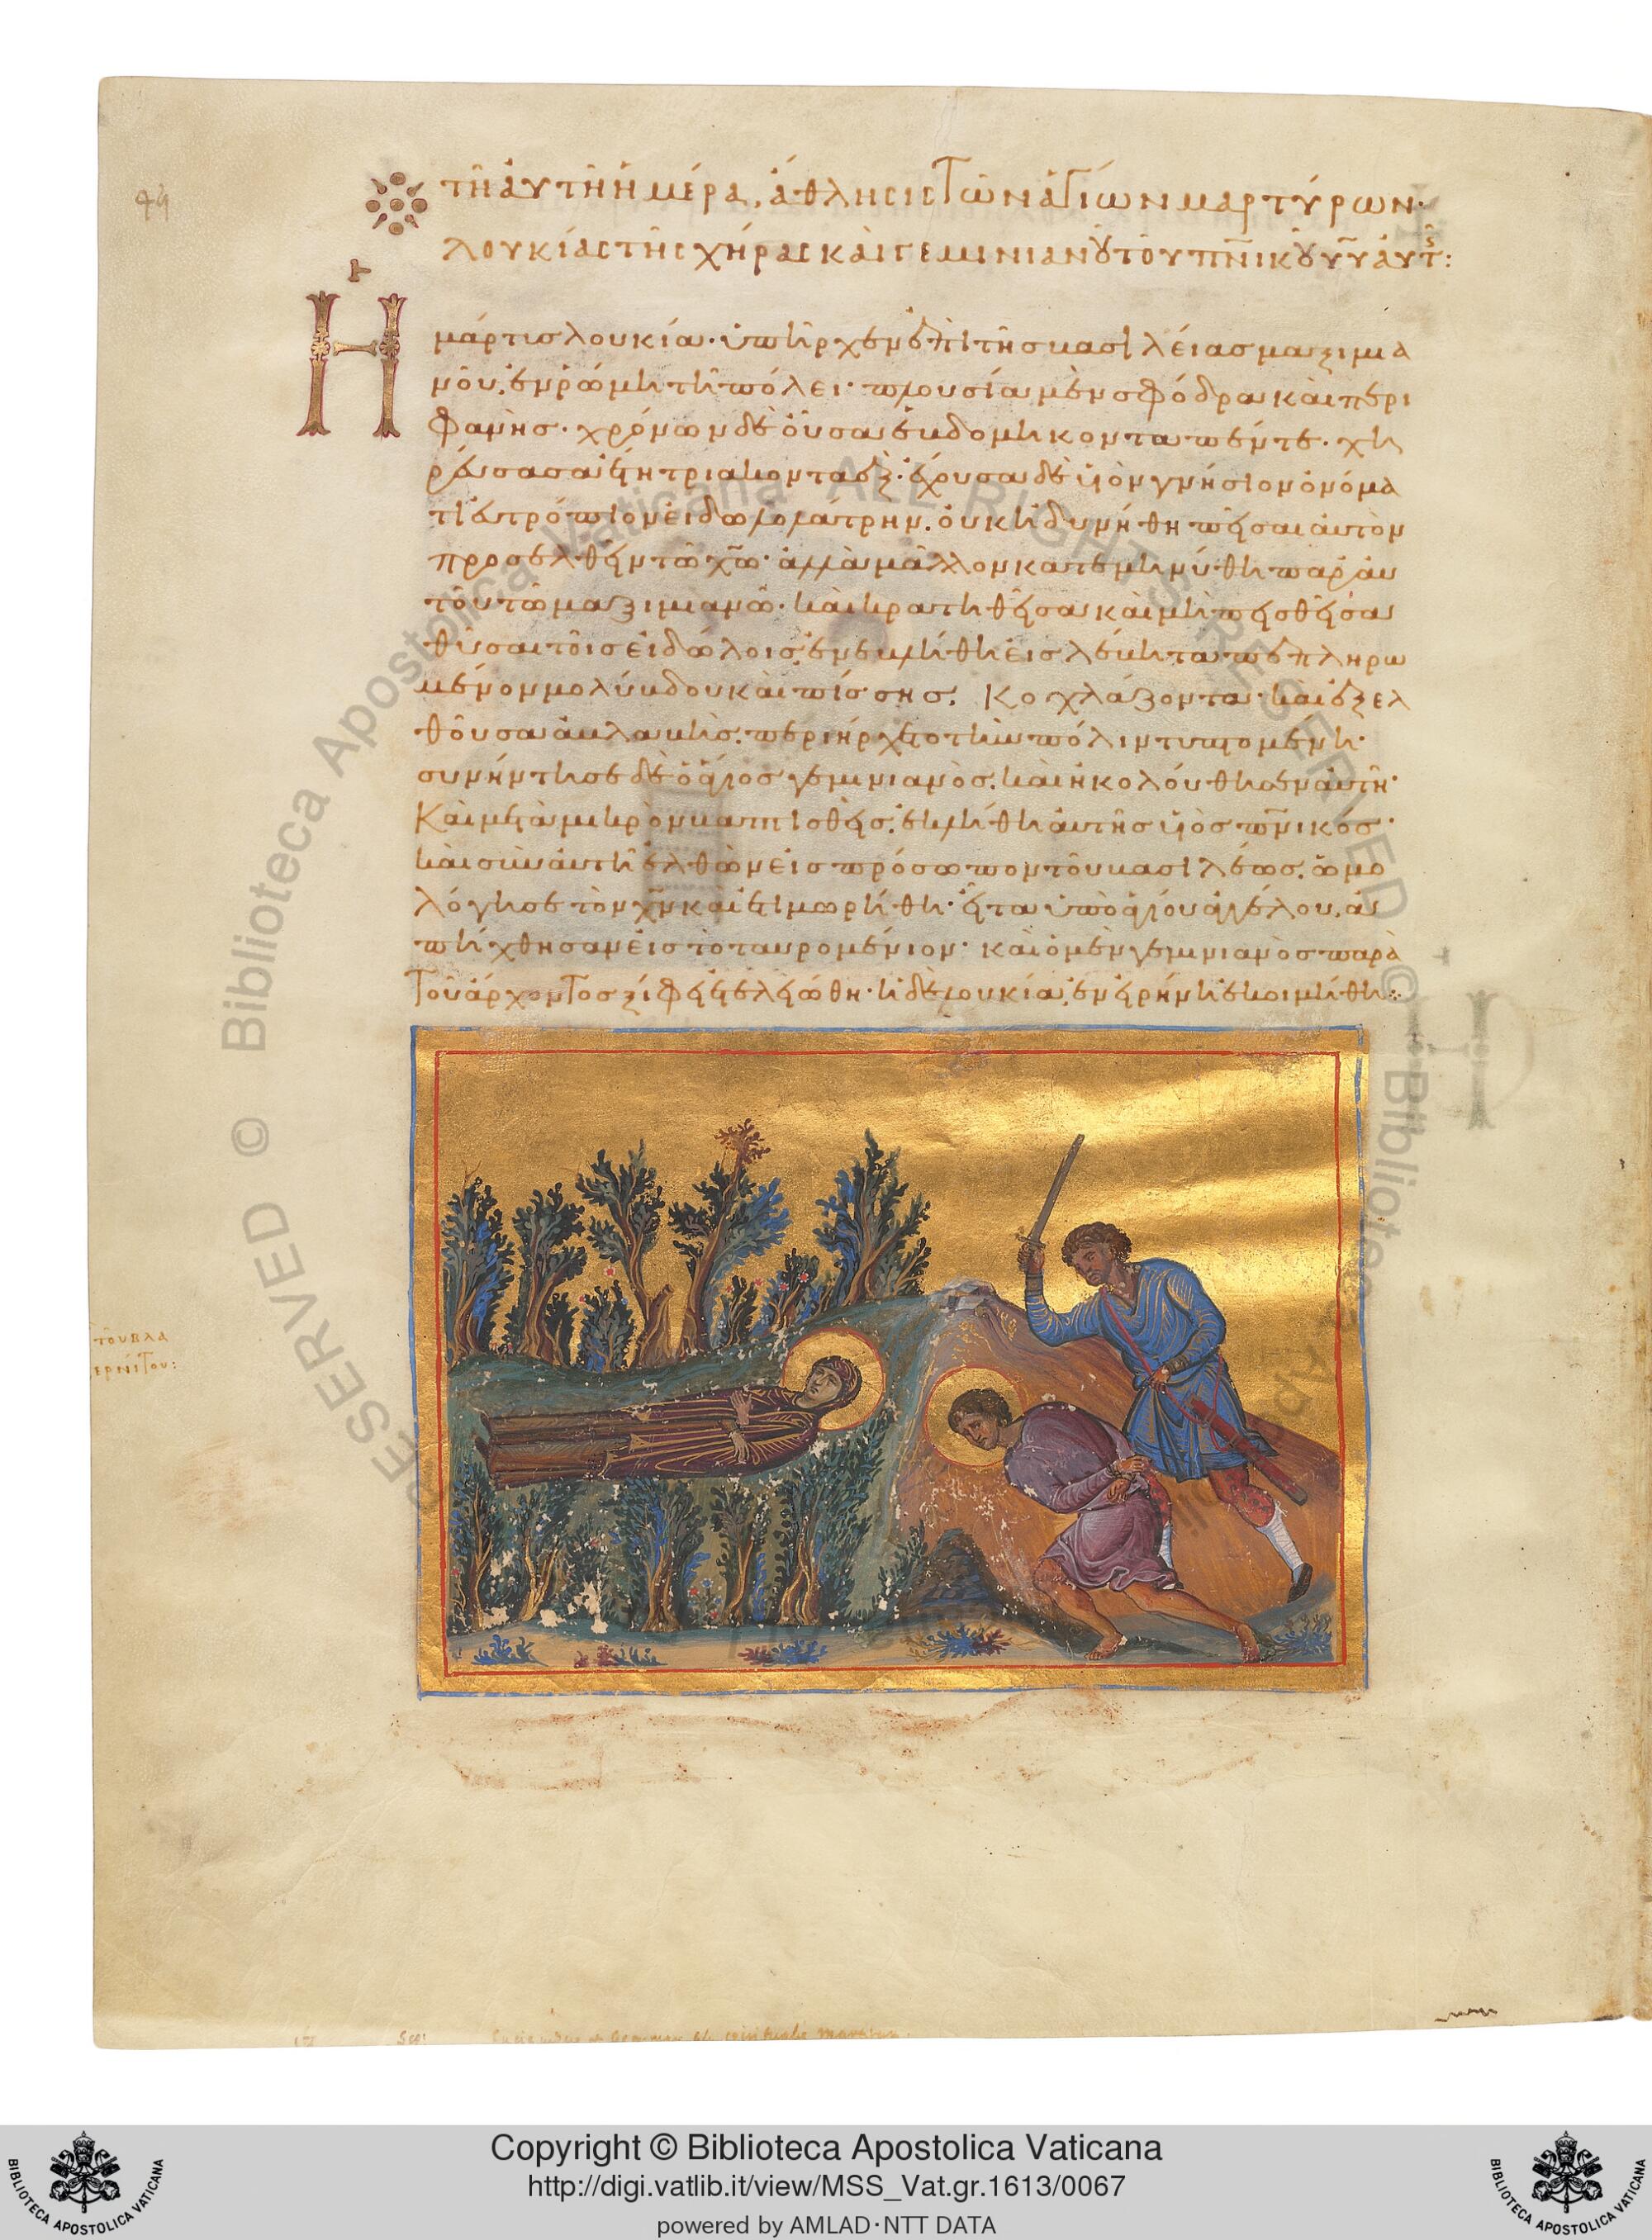 49
τῆ αὐτῆ ἡμέρα, ἄθλησις τῶν ἁγίων μαρτύρων·
λουκίας τῆς χήρας καὶ γεμινιανοῦ τοῦ πνικοῦ υυ αὐτῆς:
Ἡ μάρτυς λουκία· ὑπῆρχεν ἐπὶ τῆς βασιλείας μαξιμια
νοῦ, ἐν ῥώμη τῆ πόλει· πλουσία μὲν σφόδρα καὶ περι
φανὴς· χρόνων δὲ οὖσα ἑβδομηκονταπέντε· χη
ρεύσασα ἔτη τριακονταέξ· ἔχουσα δὲ υἱὸν γνήσιον ὀνόμα
τι εὐτρόπιον εἰδωλολάτρην, οὐκ ἠδυνήθη πεῖσαι αὐτὸν
προσελθεῖν τῶ χω· ἀλλὰ μᾶλλον κατεμηνύθη παρ' αὐ
τοῦ τῶ μαξιμιανῶ· καὶ κρατηθεῖσα καὶ μὴ πεισθεῖσα
θῦσαι τοῖς εἰδώλοις, ἐνεβλήθη εἰς λέβητα πεπληρω
μένον μολύβδου καὶ πίσσης, κοχλάζοντα· καὶ ἐξελ
θοῦσα ἀβλαβὴς, περιήρχετο τὴν πόλιν τυπτομένη·
συνήντησε δὲ ὁ ἅγιος γεμινιανὸς, καὶ ἠκολούθησεν αὐτῆ·
Καὶ μετὰ μικρὸν βαπτισθεὶς, ἐκλήθη αὐτῆς υἱὸς πνικός·
καὶ σὺν αὐτῆ ἐλθὼν εἰς πρόσωπον τοῦ βασιλέως, ὡμο
λόγησε τὸν χν καὶ ἐτιμωρήθη· εἶτα ὑπὸ ἁγίου ἀγγέλου, ἀ
πήχθησαν εἰς τὸ ταυρομένιον· καὶ ὁ μὲν γεμινιανὸς παρὰ
τοῦ ἄρχοντος ξίφει ἐτελειώθη· ἡ δὲ λουκία, ἐν εἰρήνη ἐκοιμήθη:
τοῦ βλα
ερνίτου:
Biblioteca Apostolica Vaticana ALL RIGHTS RESERVED ©
Copyright © Biblioteca Apostolica Vaticana
http://digi.vatlib.it/view/MSS_Vat.gr.1613/0067
powered by AMLAD·NTT DATA
BIBLIOTECA APOSTOLICA VATICANA
BIBLIOTECA APOSTOLICA VATICANA